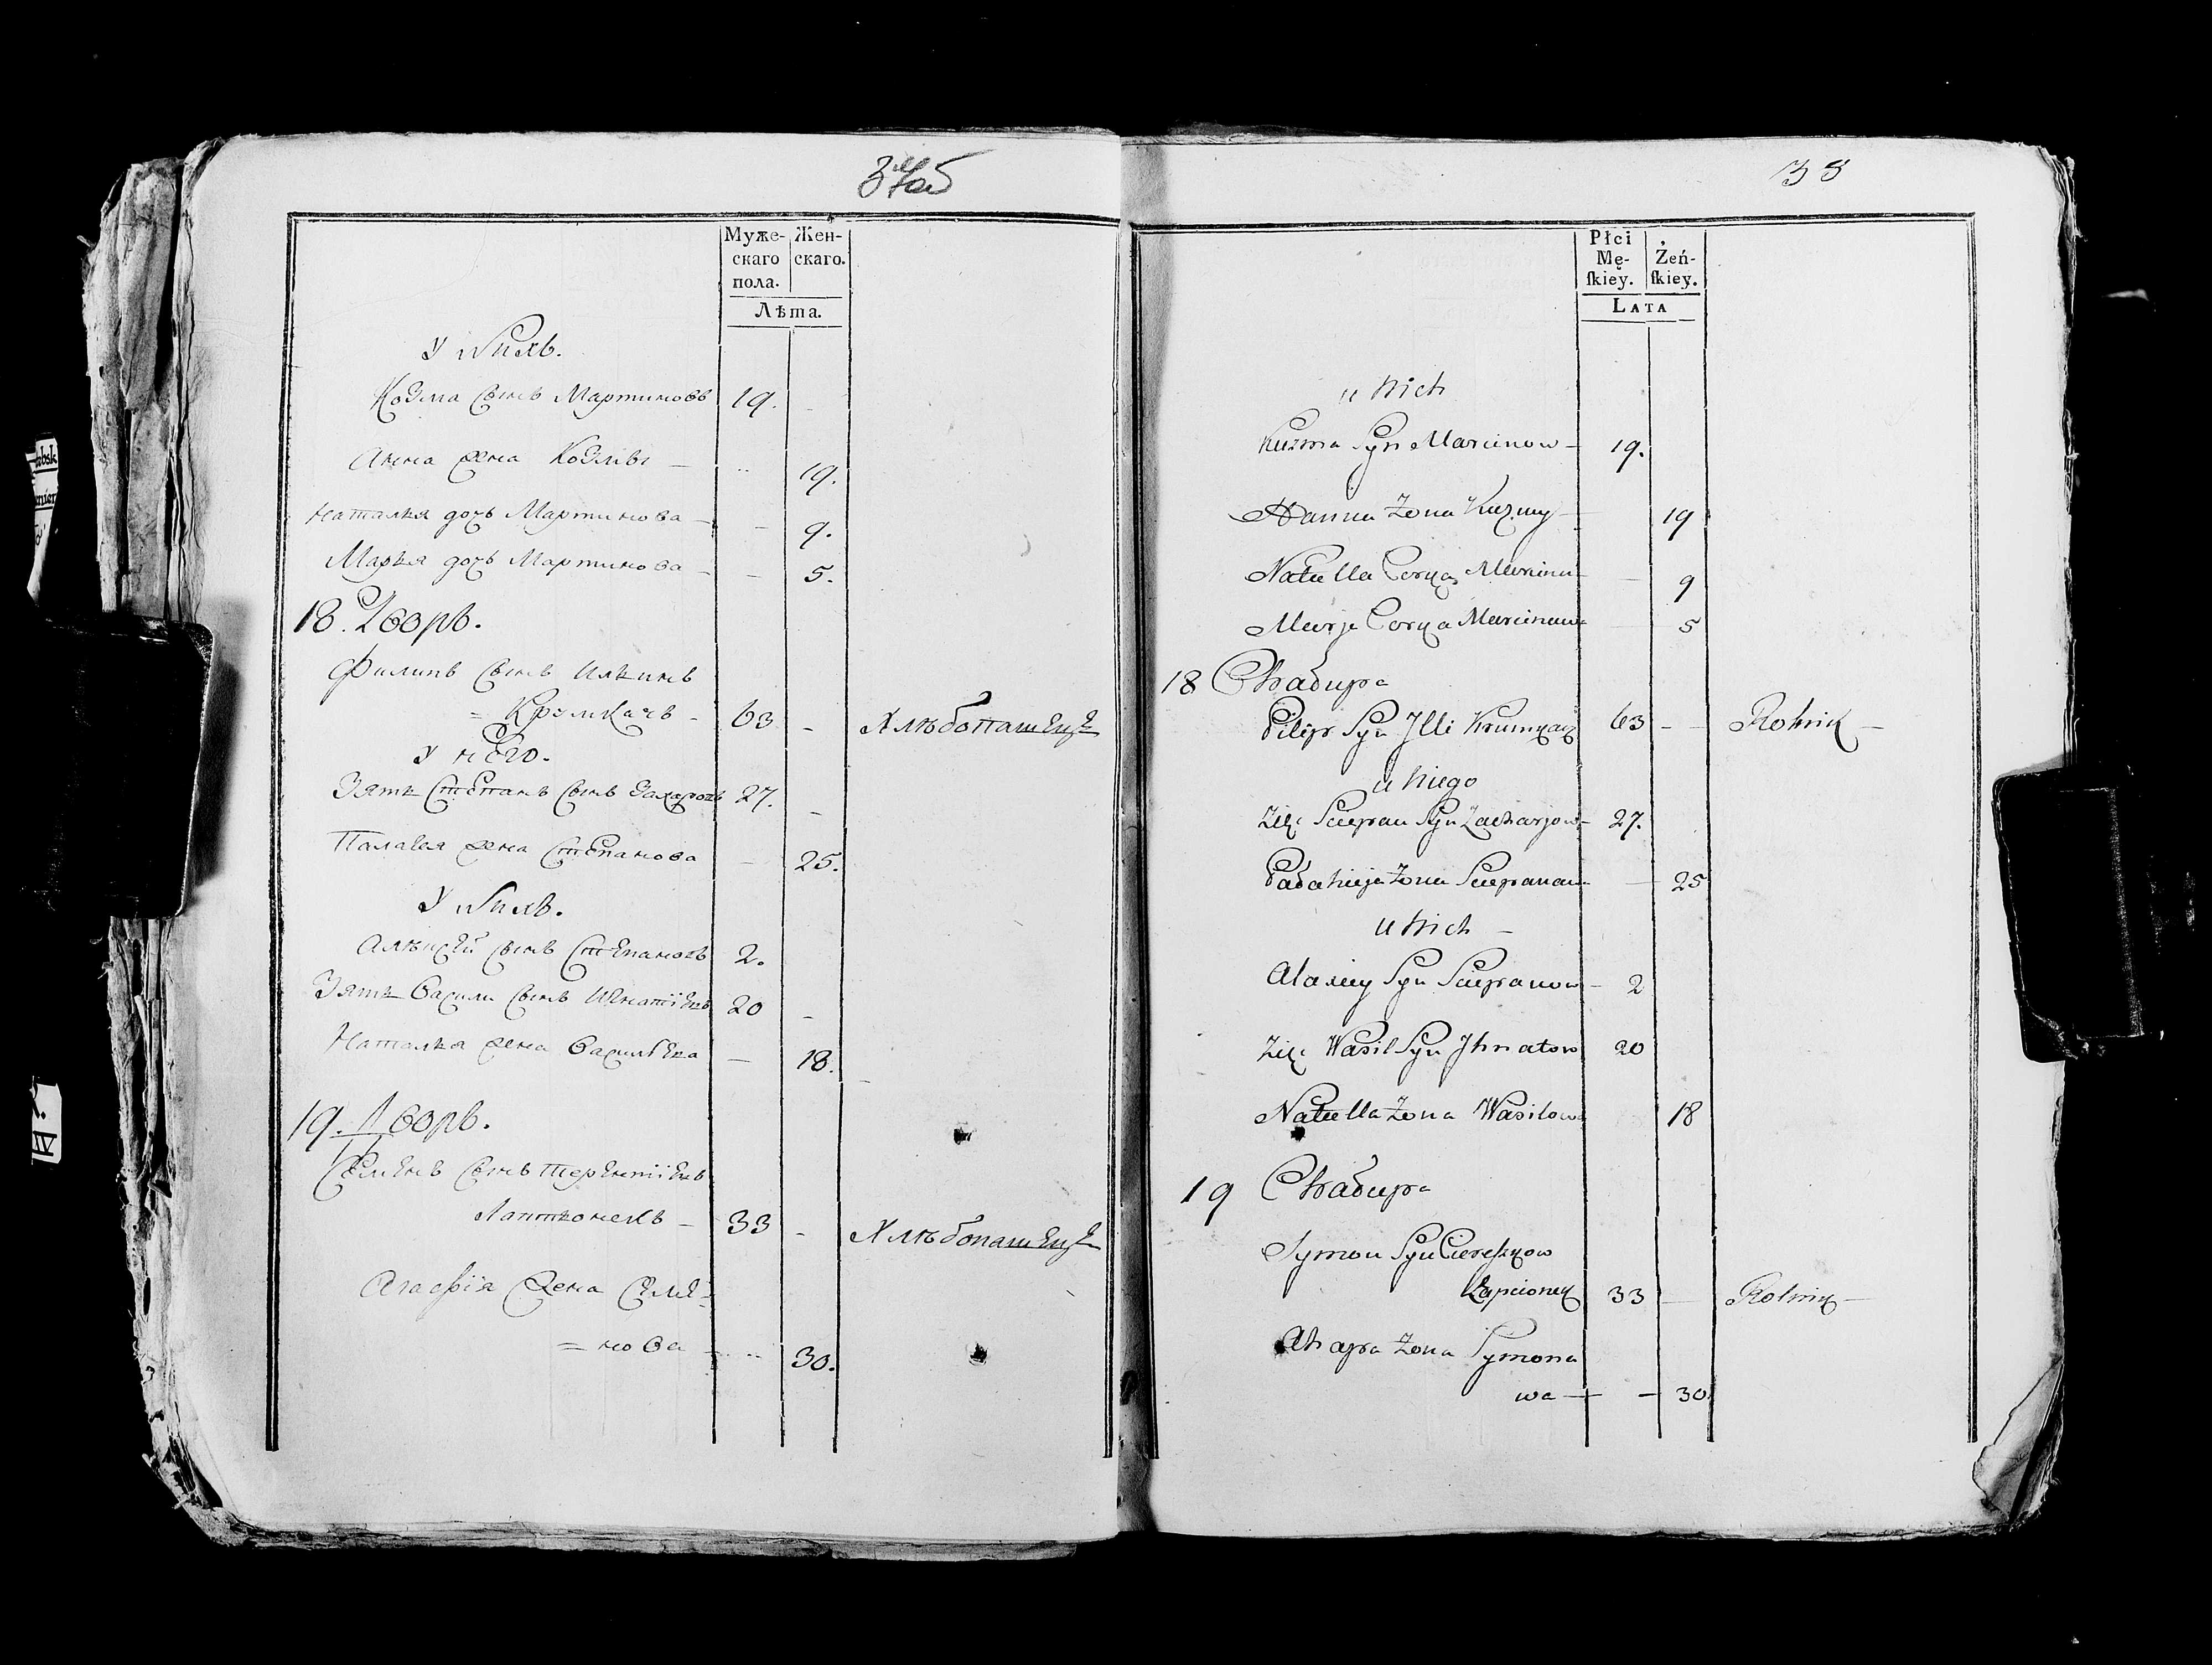 37об
Муже-
скаго
пола.
Жен-
скаго.
Лѣта.
У нихъ.
Козма сынъ Мартиновъ 19. -
Анна жена Козмы - 19.
Наталья дочь Мартинова - - 9.
Марья дочь Мартинова - - 5.
18. Дворъ.
Филипъ сынъ Ильинъ
= Крумкачъ - 63 - Хлѣбопашецъ
У него.
Зять Степанъ сынъ Захаровъ 27. -
Палагея жена Степанова - 25.
У нихъ.
Алексѣй сынъ Степановъ 2.
Зять Васили сынъ Игнатіевъ 20 -
Наталья жена Васильева - 18.
19. Дворъ.
Семенъ сынъ Терентіевъ
Лаптіонокъ - 33 - Хлѣбопашецъ
Агафія жена Семе-
= нова - 30.
38
Płci
Mę-
ſkiey.
Żeń-
ſkiey.
LATA
u Nich
Kuzma Syn Marcinow - 19.
Hanna Żona Kuzmy - 19
Natalla Corka Marcina - 9
Marja Corka Marcinawa 5
18 Chadupa
Pilip Syn Jlli Krumkacz 63 - Rolnik -
u Niego
Zięć Sciepan Syn Zacharjow - 27.
Pałahieja Żona Sciepanawa - 25
U Nich -
Alaxiey Syn Sciepanow - 2
Zięć Wasil Syn Jhnatow 20
Natalla Żona Wasilowa 18
19 Chadupa
Symon Syn Ciereszkow
Łapcionek 33 - Rolnik -
Ahapa Żona Symona
wa - - 30